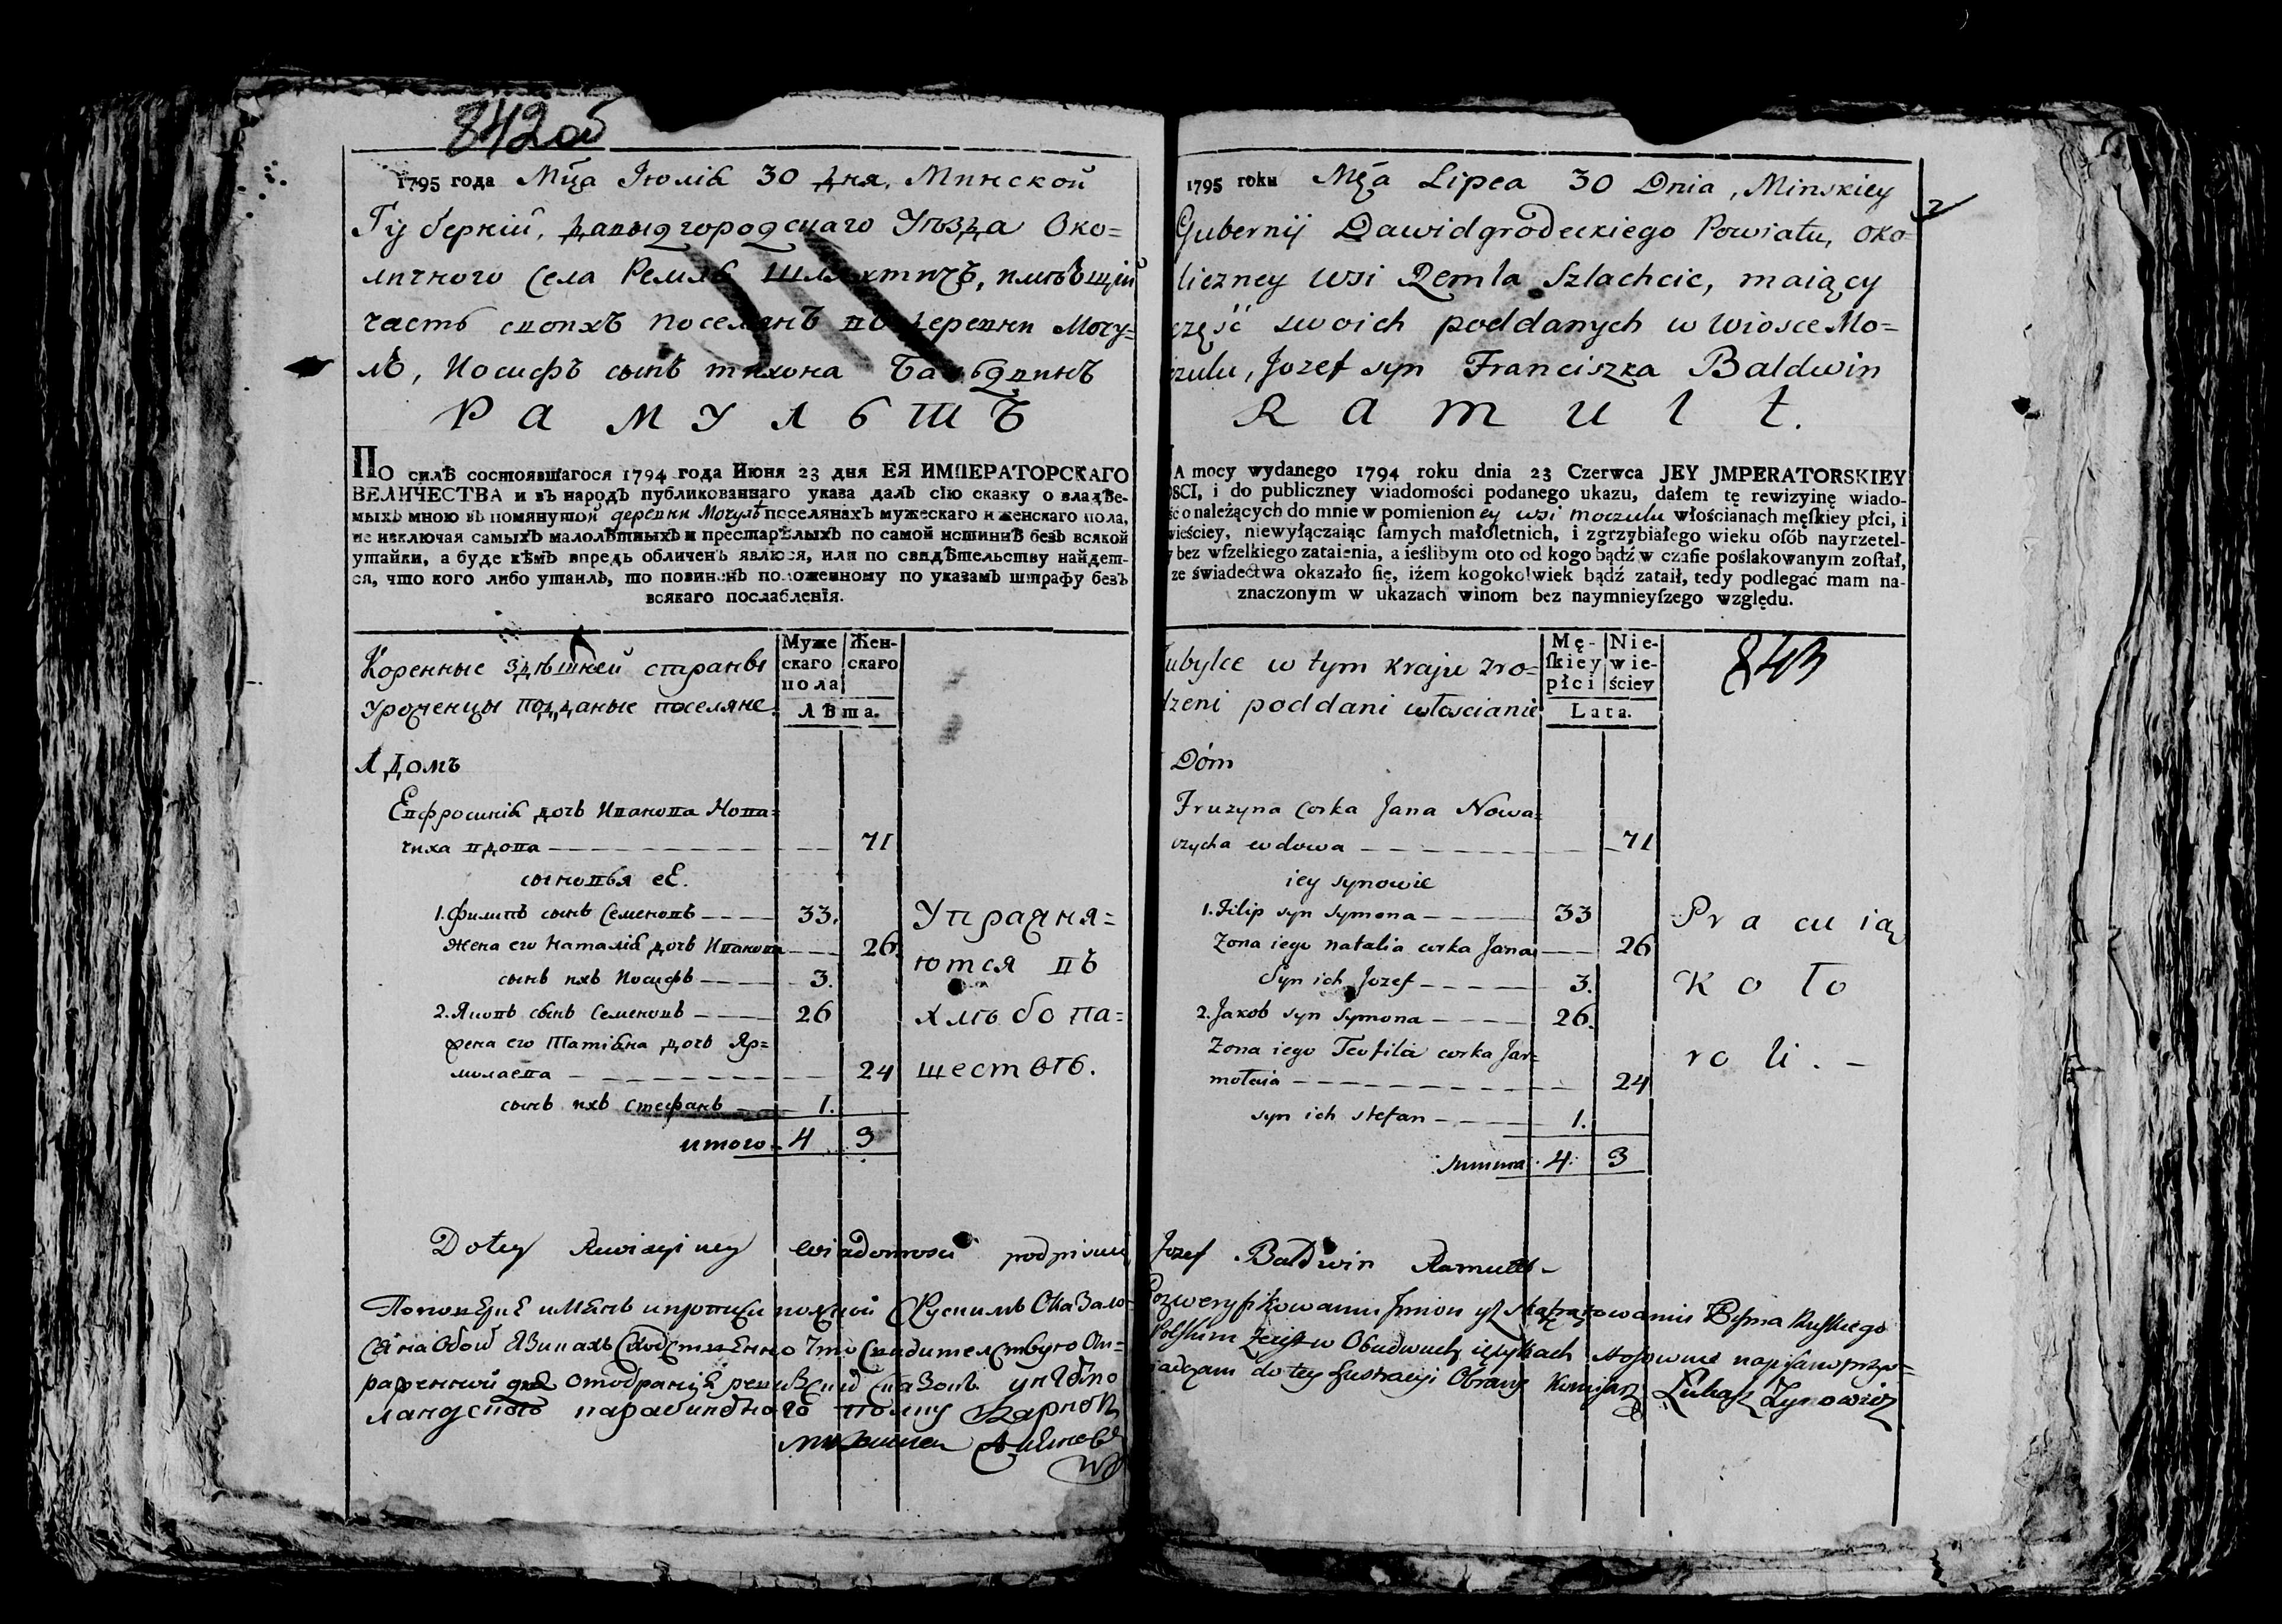 842об
1795 года Мца Іюлія 30 Дня, Минской
Губерніи, Давыдгородскаго Уѣзда Око=
личного Села Ремля Шляхтичъ, имѣющій
часть своихъ поселянъ въ деревни Мочу=
лѣ, Иосифъ сынъ тихона Бальдвинъ
Рамультъ
По силѣ состоявшагося 1794 года Июня 23 дня ЕЯ ИМПЕРАТОРСКАГО
ВЕЛИЧЕСТВА и въ народъ публикованнаго указа далъ сію сказку о владѣе-
мыхъ мною въ помянутой деревни Мочулѣ поселянахъ мужескаго и женскаго пола,
не исключая самыхъ малолѣтныхъ и престарѣлыхъ по самой истиннѣ безъ всякой
утайки, а буде кѣмъ впредь обличенъ явлюся, или по свидѣтельству найдет-
ся, что кого либо утаилъ, то повиненъ положенному по указамъ штрафу безъ
всякаго послабленїя.
Коренные здѣшней стараны
урочен­цы подданые поселяне
Муже
скаго
пола
Жен-
скаго
Лѣта.
1 Домъ
Евфросинія дочь Иванова Нова=
чиха вдова 71
сыновья еЕ.
1. Филипъ сынъ Семеновъ 33.
Жена его Наталія дочь Иванова 26.
сынъ ихъ Иосифъ 3.
2. Яковъ сынъ Семеновъ 26
жена его Татіяна дочь Яр=
молаева 24
сынъ ихъ Стефанъ 1.
итого 4 3
Упражня=
ются въ
хлѣбопа=
шествѣ.
Do tey Rewizyiney wiadomosci podpisuię
1795 roku Mca Lipca 30 Dnia, Minskiey
Gubernij Dawidgrodeckiego Powiatu, oko=
liczney wsi Remla Szlachcic, maiący
część swoich poddanych w Wiosce Mo=
czulu, Jozef syn Franciszka Baldwin
Ramult.
A mocy wydanego 1794 roku dnia 23 Czerwca JEY JMPERATORSKIEY
OSCI, i do publiczney wiadomości podanego ukazu, dałem tę rewizyinę wiado-
ść o należących do mnie w pomienioney wsi moczulu włościanach męskiey płci, i
wieściey, niewyłączaiąc samych małoletnich, i zgrzybiałego wieku osób nayrzetel-
y bez wszelkiego zataienia, a ieślibym oto od kogo bądź w czasie poślakowanym został,
ze świadectwa okazało się, iżem kogokolwiek bądź zataił, tedy podlegać mam na-
znaczonym w ukazach winom bez naymnieyszego względu.
ubylce w tym kraju zro=
dzeni poddani włoscianie
Mę-
skiey
płci
Nie-
wie-
ściey
Lata.
843
Dóm
Fruzyna corka Jana Nowa=
czycha wdowa 71
iey synowie
1. Filip syn Symona 33
Zona iego natalia corka Jana 26
Syn ich Jozef 3.
2. Jakob syn Symona 26.
Zona iego Teofila corka Jar=
mołaia 24
syn ich stefan 1.
summa 4. 3
Pracuią
koło
roli. –
Jozef Baldwin Ramult